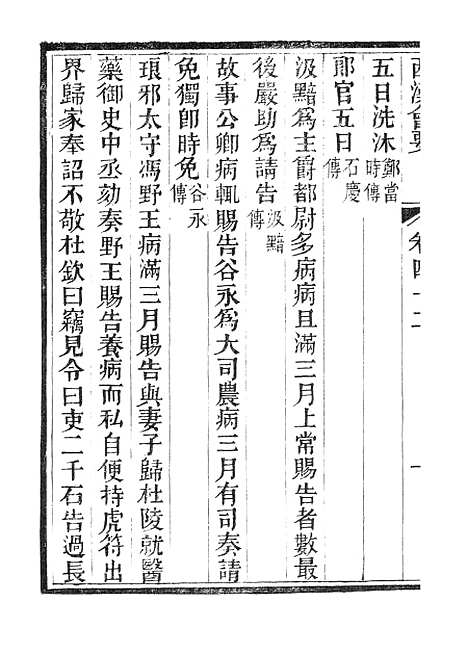 西漢會要 卷四十二 一
五日洗沐鄭當時傳
郎官五日石慶傳
汲黯爲主爵都尉多病病且滿三月上常賜告者數最
後嚴助爲請告汲黯傳
故事公卿病輒賜告谷永爲大司農病三月有司奏請
免獨卽時免谷永傳
琅邪太守馮野王病滿三月賜告與妻子歸杜陵就醫
藥御史中丞劾奏野王賜告養病而私自便持虎符出
界歸家奉詔不敬杜欽曰竊見令曰吏二千石告過長